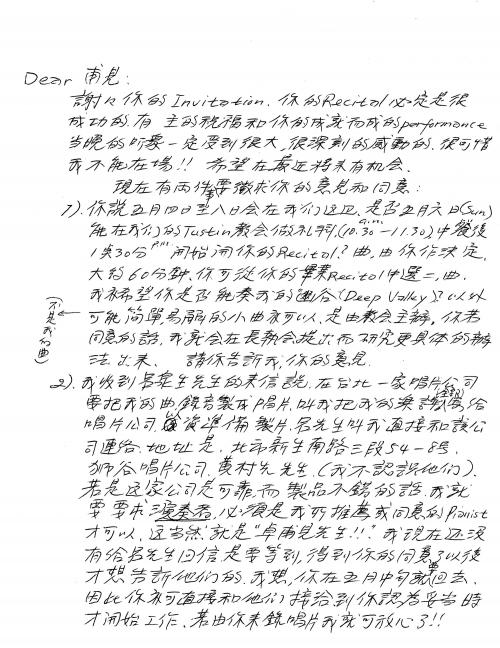 Dear 甫見:
謝々你的Invitation. 你的Recital必定是很
成功的. 有 主的祝福和你的成熟而成的performance
当晚的听衆一定受到很大, 很深刻的感動的. 很可惜
我不能在場!! 希望在最近將来有机会.
現在有两件事要徵求你的意見和同意:
1). 你說五月四日至八日会在我们这边. 是否五月六日(Sun)
能在我们的Tustin教会做礼拜.(10.30-11.30)a.m.中餐後
1点30分p.m.開始開你的Recital? 曲, 由你作决定.
大约60分鐘. 你可從你的畢業Recital中選二, 曲.
我希望你是否能奏我的幽谷(Deep Valley)? 以外
可能簡單易丽的小曲亦可以. 是由教会主辦. 你若
(不是我的曲)
同意的話, 我就会在長執会提出而研究更具体的辦
法出来. 請你告訴我, 你的意見.
2). 我收到呂泉生先生的来信說. 在台北一家唱片公司
要把我的曲錄音製成唱片. 叫我把我的樂譜全部寄給
唱片公司. 以後準備製片. 呂先生叫我直接和該公
司連络. 地址是. 北市新生南路三段54-8号.
獅谷唱片公司. 黄村先先生. (我不認識他们).
若是这家公司是可靠而製品不錯的話. 我就
要要求演奏者, 必須是我所推薦或同意的Pianist
才可以. 这当然就是"卓甫見先生!!". 我現在还没
有给呂先生回信是要等到, 得到你的同意了以後
才想告訴他们的. 我想, 你在五月中旬就要回去.
因此你亦可直接和他们接洽到你認為妥当時
才開始工作. 若由你来錄唱片我就可放心了!!